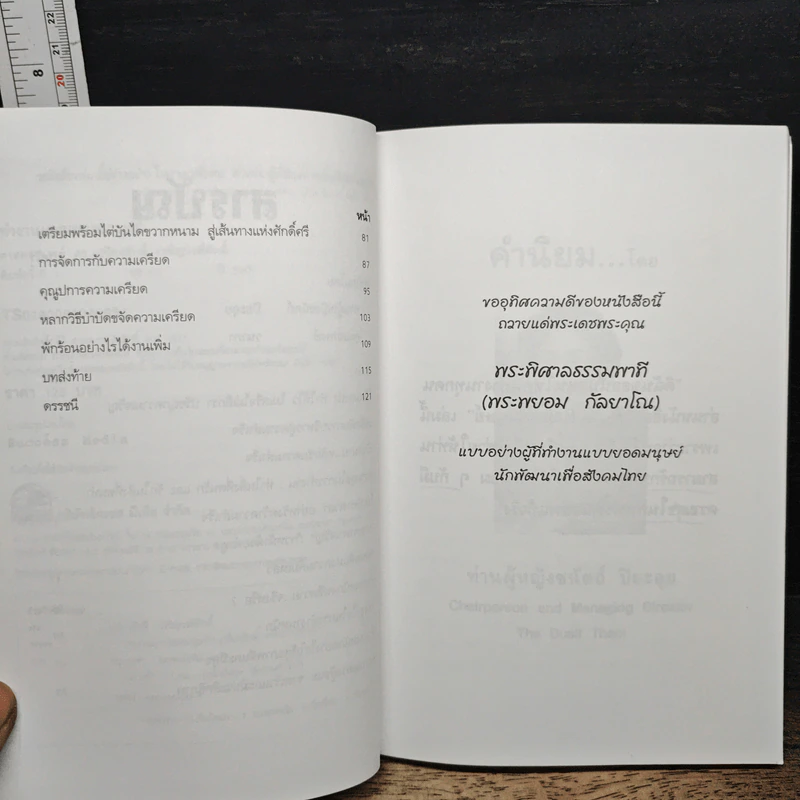 22
21
20
8
หน้า
เตรียมพร้อมไต่บันไดขวากหนาม สู่เส้นทางแห่งศักดิ์ศรี 81
การจัดการกับความเครียด 87
คุณูปการความเครียด 95
หลากวิธีบำบัดขจัดความเครียด 103
พักร้อนอย่างไรได้งานเพิ่ม 109
บทส่งท้าย 115
ดรรชนี 121
ขออุทิศความดีของหนังสือนี้
ถวายแด่พระเดชพระคุณ
พระพิศาลธรรมพาที
(พระพยอม กัลยาโณ)
แบบอย่างผู้ที่ทำงานแบบยอดมนุษย์
นักพัฒนาเพื่อสังคมไทย
สารบัญ
คำนิยม...
Chairperson and Managing Director